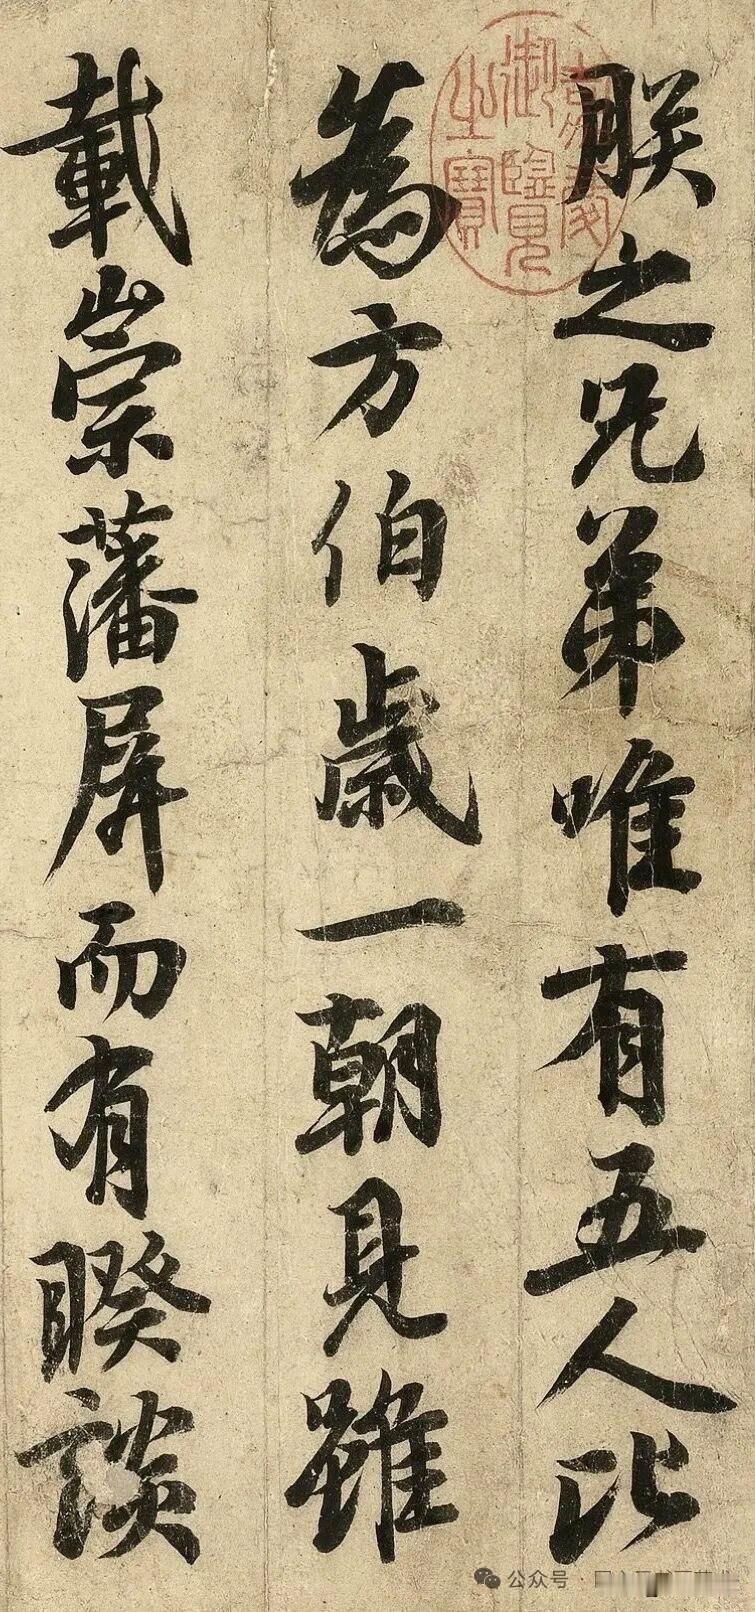 朕之兄弟唯有五人比
為方伯歲一朝見雖
載崇藩屏而有睽談
嘉慶
御覽
之寶
公众号